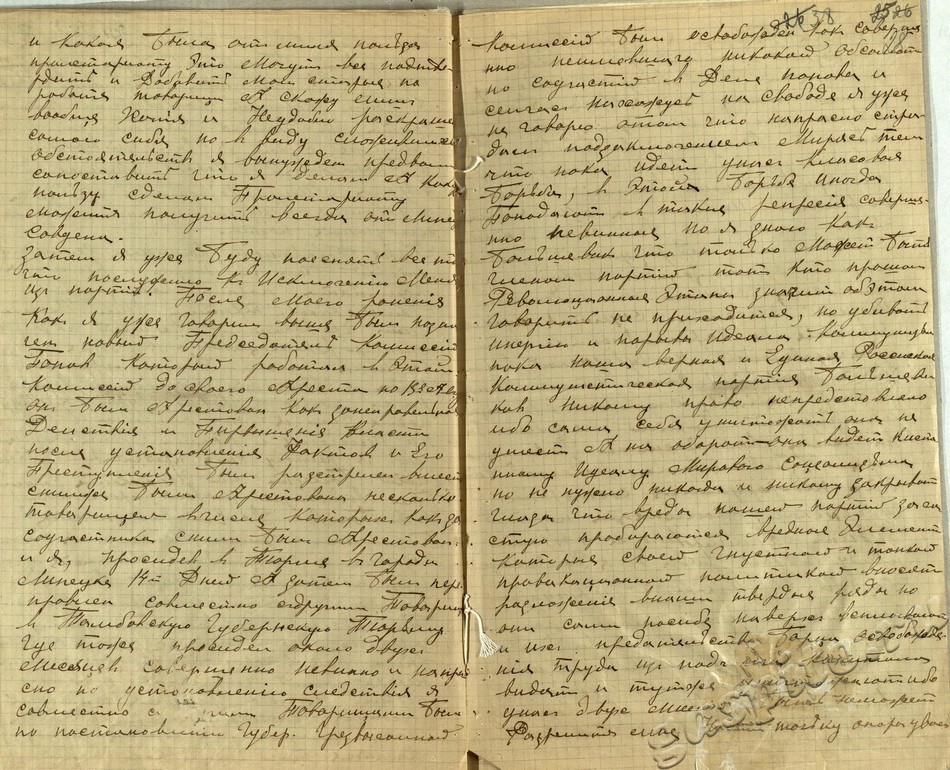 и какая была от меня польза
пролетариату это могут все подтвер-
дить и добавить мои старые по
работе товарищи А скажу лишь
вообще и неудобно
самого себя но в виду сложившихся
обстоятельств я вынужден
сопоставить что я делал и какую
пользу сделал Пролетариату
может получить всегда от меня
Затем я уже буду пояснять все то
что послужило к исключению меня
из партии. После моего ранения
Как я уже говорил выше был назна-
чен новый Председатель Комиссии
Попов который работал в этой
комиссии до своего Ареста но
он был Арестован как за
Действия и Превышения власти
после установления Фактов и Его
Преступления был расстрелен вместе
с ним же были Арестованы несколько
товарищей в числе которых как за
соучастника с ним был Арестован
и я, просидев в Тюрьме в городе
Липецке 14 Дней А затем был пере
правлен совместно с другими Товарищ
в Тамбовскую Губернскую Тюрьму
где тоже просидел около двух
месяцев совершенно невинно и напра
сно но установлению следствия я
совместно с Товарищами был
по постановлению Губер. Чрезвычайной
38 26
комиссий был освобожден как соверше
нно невиновного никакой
но соучастий в Деле Попова и
сейчас нахожусь на свободе я уже
не говорю о том что напрасно стра-
дал под заключением мирясь тем
что пока идет у нас классовая
борьба, в этой борьбе иногда
Попадают в такие репрессия соверше-
нно невинные но я знаю как
большевик что только может быть
членом партии тот кто прошел
Революционная этапы значит об этом
говорить не приходится, но убивать
энергию и порывы идеала коммунизма
пока наша верная и Единая Российская
Коммунистическая партия большеви
ков никому право не предоставляла
ибо сама себя уничтожать она не
умеет А на оборот она видет к исти
нному идеалу Мирового Социализма
но не нужно никогда и никому закрывать
глаза что в ряды нашей партии зача
стую пробираются вредные Элемент
которые своей гнустной и тонкой
провакационной политикой вносят
разложения в наши твердые ряды но
они сами
и их предательство борцы освобожде
ния труда из под ига капитала
видят и тут же
у нас двух
Разрешите мне